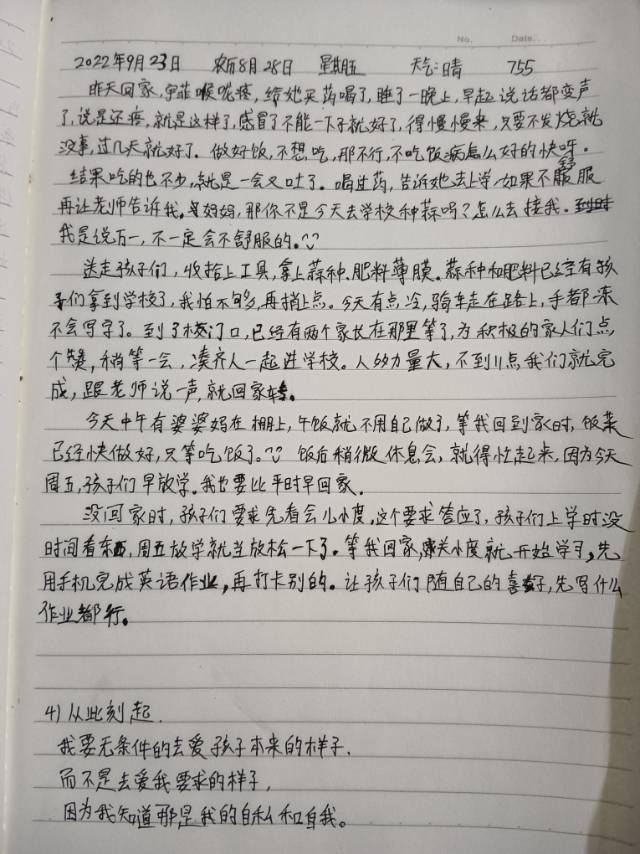 No. Date...
2022年9月23日 农历8月28日 星期五 天气:晴 755
昨天回家,宇菲喉咙疼,给她买药喝了,睡了一晚上,早起说话都变声
了,说是还疼,就是这样了,感冒了不能一下子就好了,得慢慢来,只要不发烧就
没事,过几天就好了。做好饭,不想吃,那不行,不吃饭病怎么好的快呀。
结果吃的也不少,就是一会又吐了。喝过药,告诉她去上学,如果不舒服
再让老师告诉我。妈妈,那你不是今天去学校种蒜吗?怎么去接我。到时
我是说万一,不一定会不舒服的。
送走孩子们,收拾上工具,拿上蒜种、肥料薄膜。蒜种和肥料已经有孩
子们拿到学校了,我怕不够,再捎上点。今天有点冷,骑车走在路上,手都冻
不会写字了。到了校门口,已经有两个家长在那里等了,为积极的家人们点
个赞,稍等一会,凑齐人一起进学校。人多力量大,不到11点我们就完
成,跟老师说一声,就回家转。
今天中午有婆婆妈在棚上,午饭就不用自己做了,等我回到家时,饭菜
已经快做好,只等吃饭了。饭后稍微休息会,就得忙起来,因为今天
周五,孩子们早放学。我也要比平时早回家.
没回家时,孩子们要求先看会儿小度,这个要求答应了,孩子们上学时没
时间看东西,周五放学就当放松一下了。等我回家,关小度就开始学习,先
用手机完成英语作业,再打卡别的。让孩子们随自己的喜好,先写什么
作业都行。
4)从此刻起.
我要无条件的去爱孩子本来的样子.
而不是去爱我要求的样子,
因为我知道那是我的自私和自我。